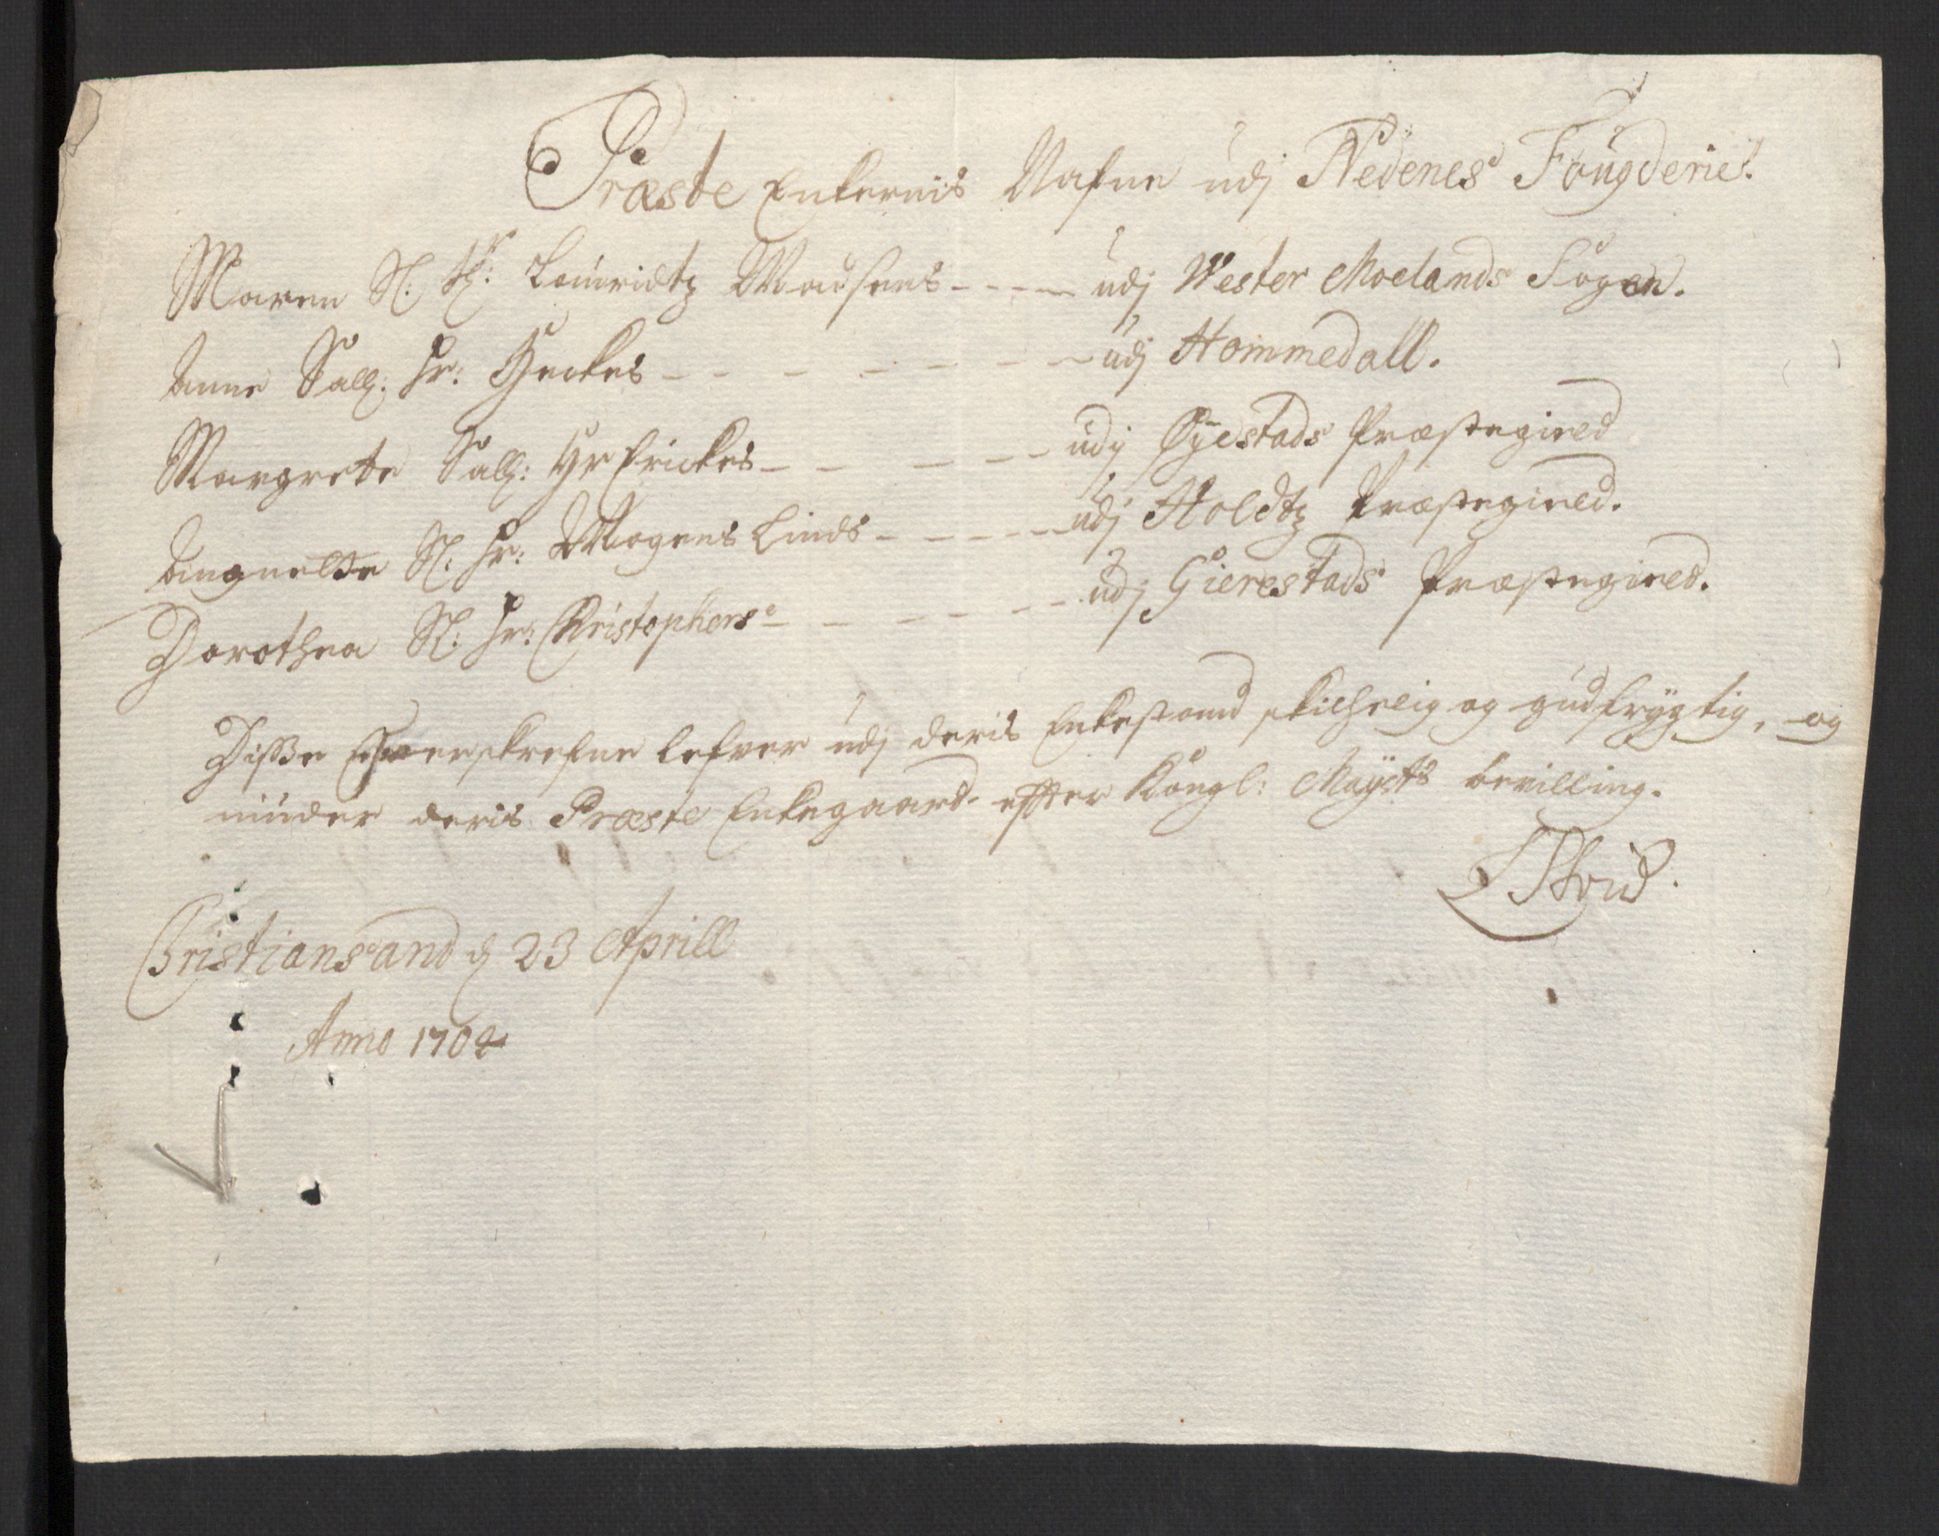 Præste Enkernis Nafne udj Nedenes Fougderie.
Maren Sl. Hr: Louridtz Madsens - - - - udj Wester Moelands Sogen.
Anne Sall: Hr: Geckes - - - - - - - udj Hommedall.
Margrete Sall: Hr Erickes - - - - - udj Øyestads Præstegield
Angnette Sl. Hr: Mogens Linds - - - - - udj Holdtz Præstegield.
Dorothea Sl: Hr: Christophers - - - - - - udj Gierestads Præstegield.
Disse Efverskrefne lefver udj deris Enkestand skichelig og gudfrygtig, og
niuder deris Præste Enkegaard efter Kongl: Mayst:s bevilling.
Christiansand d 23 Aprill
Anno 1702